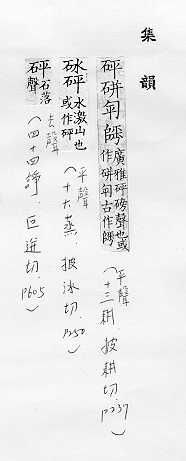 集韻
砰硑訇廣雅砰磅聲也或
作硑訇古作
(平聲 十三耕, 披耕切, P237.)
砰水激山也
或作砰
(平聲 十六蒸, 披冰切, P250.)
砰石落
聲
(去聲 四十四諍, 巨迸切, P605.)